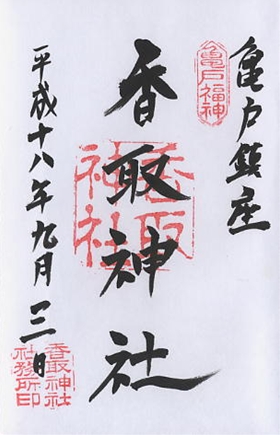 亀戸鎮座
亀戸福神
香取神社
香取神社
平成十八年九月三日
香取神社
社務所印